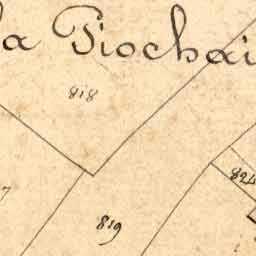 la Piochai
818
824
819
7